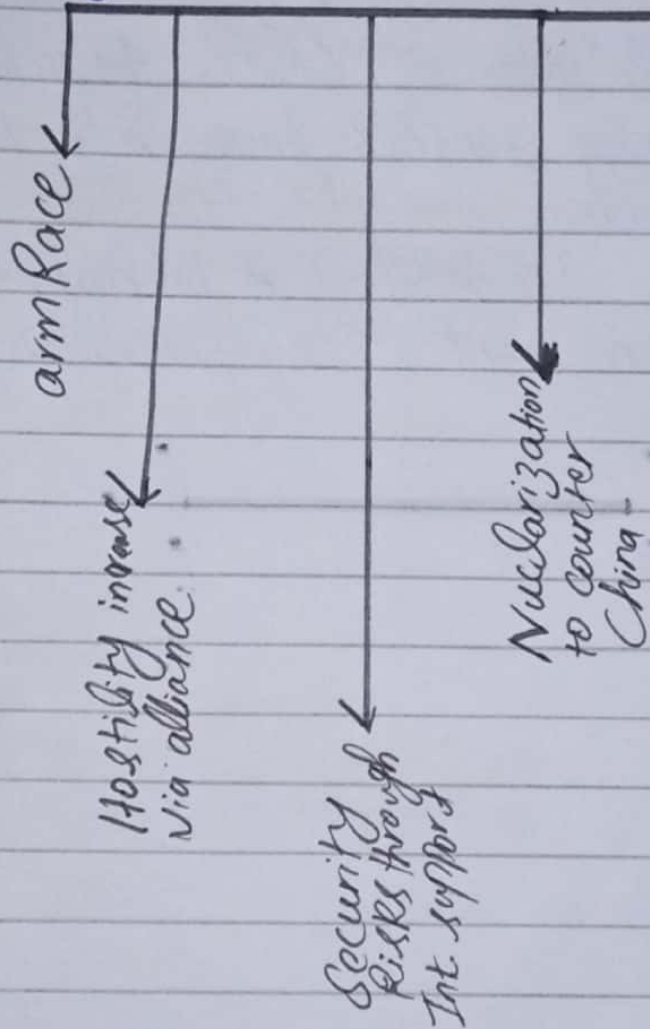 arm Race
Hostility increase
via alliance
Security
Risks through
Int. support
Nuclarization
to counter
China -